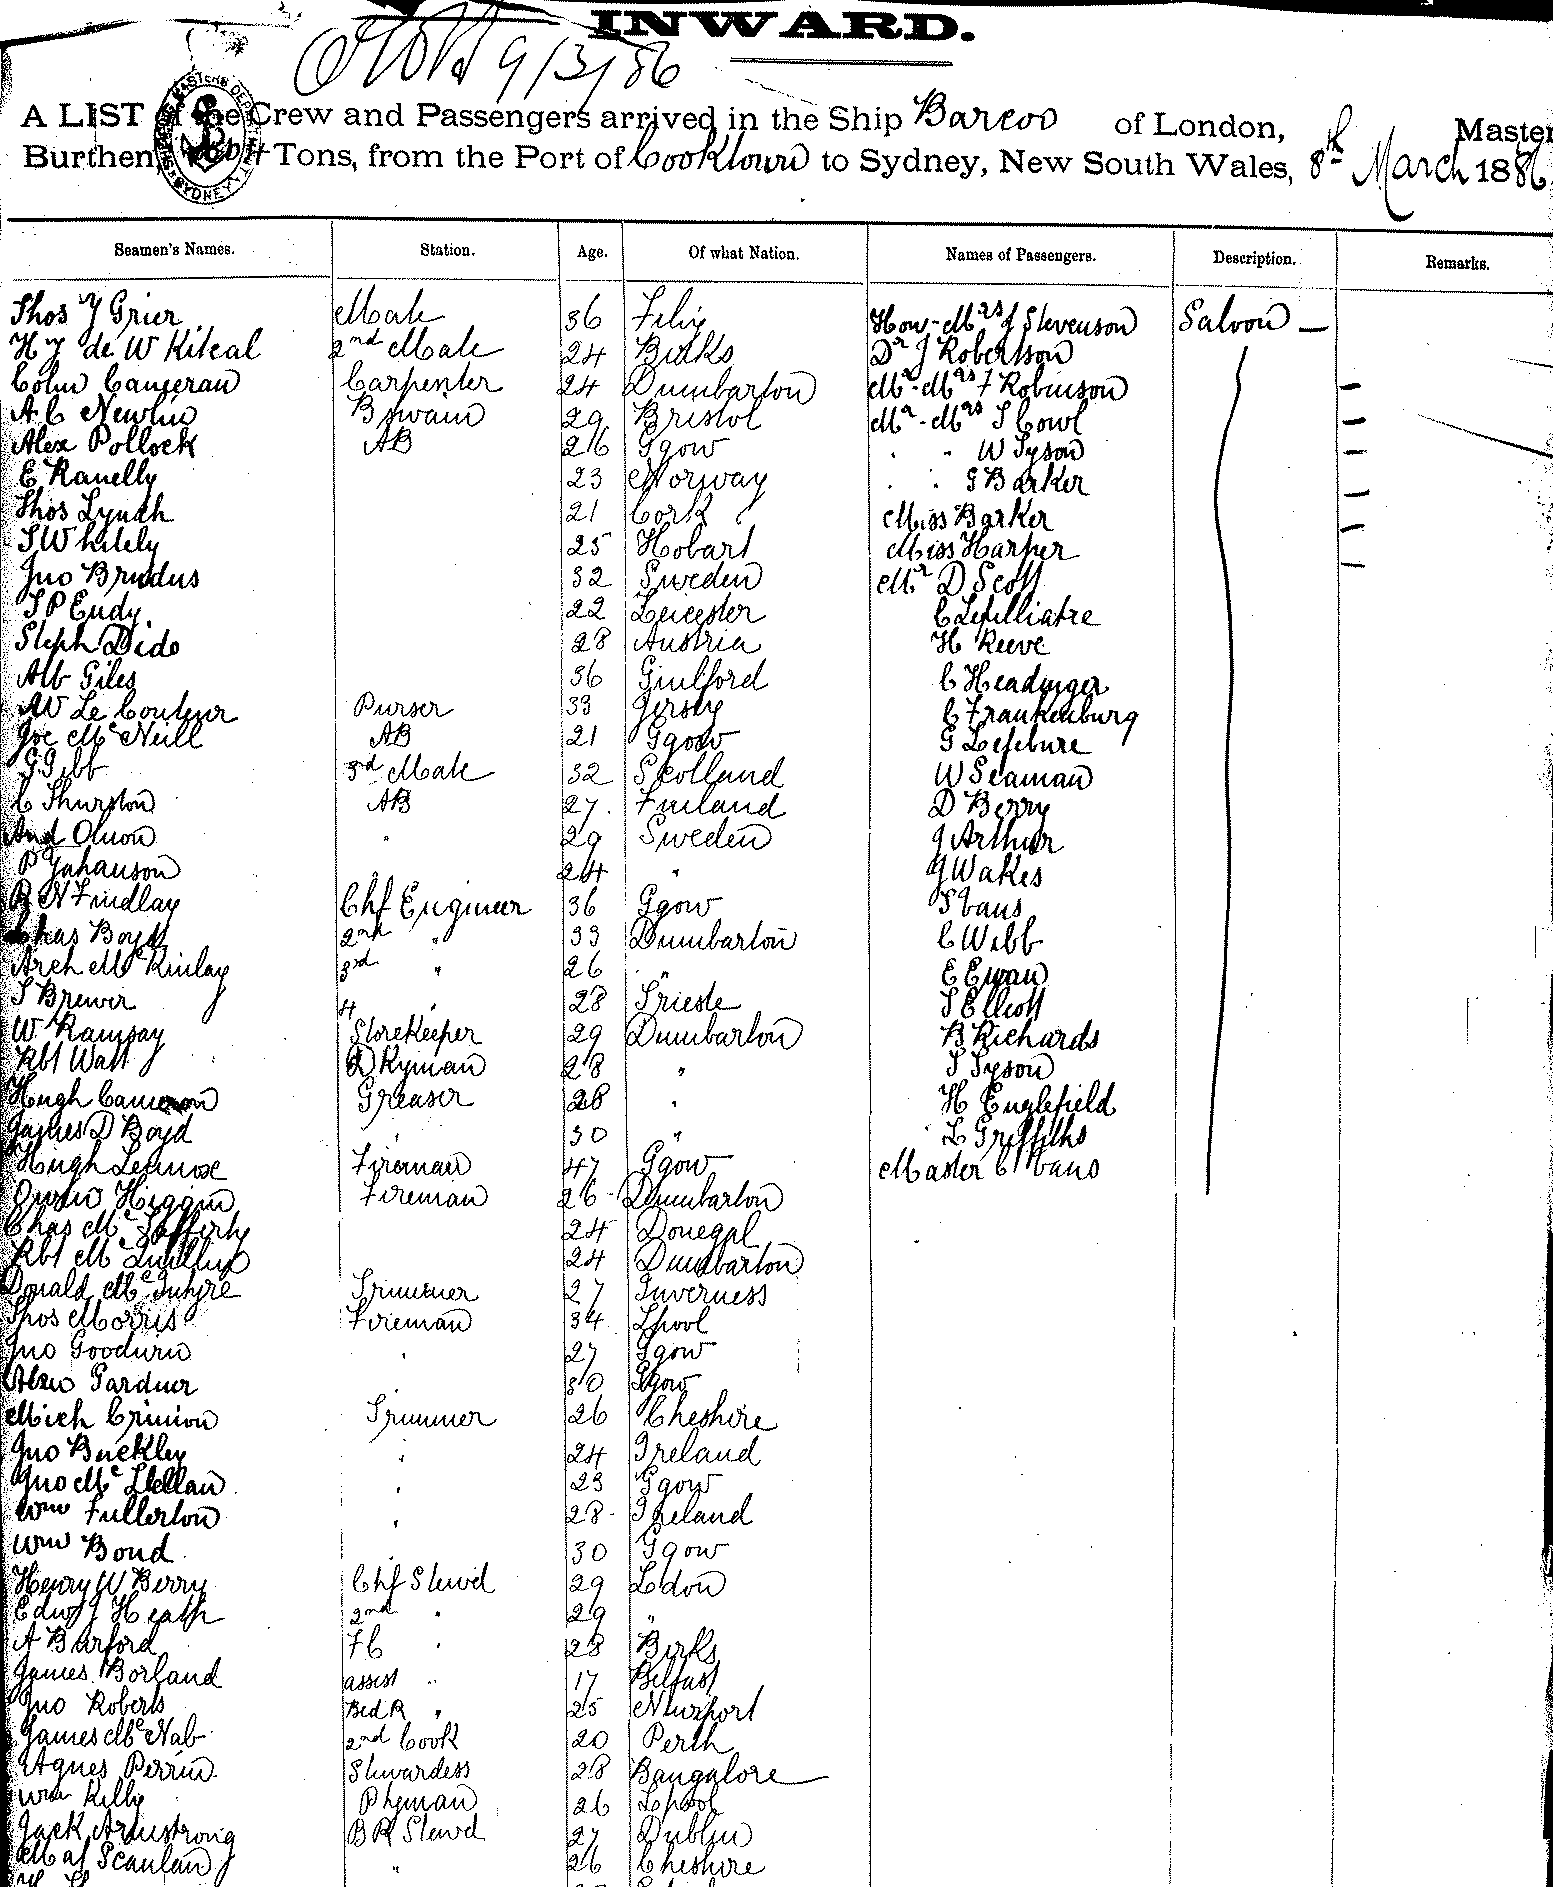 INWARD.
9/3/86
A LIST of the Crew and Passengers arrived in the Ship Barcoo of London, Master
Burthen Tons, from the Port of Cooktown to Sydney, New South Wales, 8th March 1886
Seamen's Names. Station. Age. Of what Nation. Names of Passengers. Description. Remarks.
Thos Y Grier Mate 36 Hon - Mrs J Stevenson Saloon —
Hy de W Kiteal 2nd Mate 24 Bucks Dr J Robertson
Colin Cameran Carpenter 24 Dumbarton Mr - Mrs F Robinson —
A C Newlin B swain 29 Bristol Mr - Mrs T Cowl —
Alex Pollock AB 26 Ggow " " W Tyson —
E Ranelly 23 Norway " " G Barker
Thos Lynch 21 Cork Miss Barker —
T Whitely 25 Hobart Miss Harper —
Jno Brudus 32 Sweden Mr D Scott —
T P Eudy 22 Leicester C Lefilliatre
Steph Dido 28 Austria H Reeve
Alb Giles 36 Guilford C Headinger
AW Le Couteur Purser 33 Jersey C Frankenburg
Joe McNeill AB 21 Ggow G Lefebure
G Gibb 3rd Mate 32 Scotland W Seaman
C Thurston AB 27 Finland D Berry
And Olison " 29 Sweden J Arthur
P Johanson 24 " J Wakes
R N Findlay Chf Engineer 36 Ggow T Evans
Chas Boyd 2nd " 33 Dumbarton C Webb
Arch McKinlay 3rd " 26 " E Ewan
T Brewer 4 " 28 Trieste T Elliott
W Ramsay Storekeeper 29 Dumbarton B Richards
Rbt Watt D Kyman 28 " T Tyson
Hugh Cameron Greaser 28 " H Englefield
James D Boyd " 30 " L Griffiths
Hugh Lennox Fireman 47 Ggow Master C Evans
Owen Higgin Fireman 26 Dumbarton
Chas McLafferty 24 Donegal
Rbt McQuillin 24 Dumbarton
Donald McIntyre Trimmer 27 Inverness
Thos Morris Fireman 34 Lpool
Jno Goodwin " 27 Ggow
Alex Gardner " 30 Ggow
Mich Crinion Trimmer 26 Cheshire
Jno Buckley " 24 Ireland
Jno McLellan " 23 Ggow
Wm Fullerton " 28 Ireland
Wm Bond " 30 Ggow
Henry W Berry Chf Stewd 29 Ldon
Edwd J Heath 2nd " 29 "
A Burford F C " 28 Berks
James Borland assist " 17 Belfast
Jno Roberts Bed R " 25 Newport
James McNab 2nd Cook 20 Perth
Agnes Perrin Stewardess 28 Bangalore
Wm Kelly P tyman 26 Lpool
Jack Armstrong B R Stewd 27 Dublin
Scanlan " 26 Cheshire